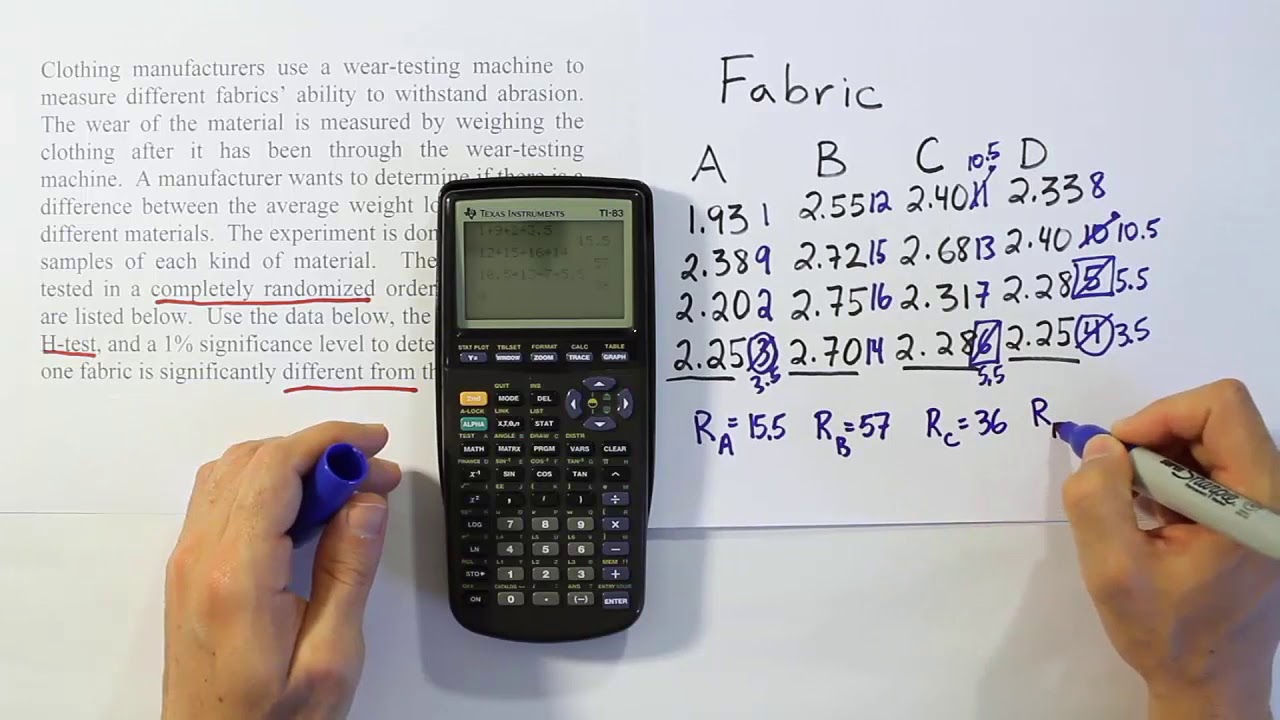 Clothing manufacturers use a wear-testing machine to
measure different fabrics' ability to withstand abrasion.
The wear of the material is measured by weighing the
clothing after it has been through the wear-testing
machine. A manufacturer wants to determine if there is a
difference between the average weight
different materials. The experiment is
samples of each kind of material. The
tested in a completely randomized order
are listed below. Use the data below, the
H-test, and a 1% significance level to
one fabric is significantly different from
Fabric
A B C 10.5 D
1.93 1 2.55 12 2.40 11 2.33 8
2.38 9 2.72 15 2.68 13 2.40 10 10.5
2.20 2 2.75 16 2.31 7 2.28 5 5.5
2.25 3 2.70 14 2.28 6 2.25 4 3.5
3.5 5.5
RA = 15.5 RB = 57 RC = 36 R
TEXAS INSTRUMENTS TI-83
1+9+2+3.5
15.5
12+15+16+14
57
10.5+13+7+5.5
36
STAT PLOT TBLSET FORMAT CALC TABLE
Y= WINDOW ZOOM TRACE GRAPH
QUIT INS
2nd MODE DEL
A-LOCK LINK LIST
ALPHA X,T,Θ,n STAT
TEST A ANGLE B DRAW C DISTR
MATH MATRX PRGM VARS CLEAR
x⁻¹ SIN COS TAN ^
x² , ( ) ÷
LOG 7 8 9 ×
LN 4 5 6 −
STO▸ 1 2 3 +
OFF CATALOG ANS
ON 0 . (−) ENTER
Sharpie